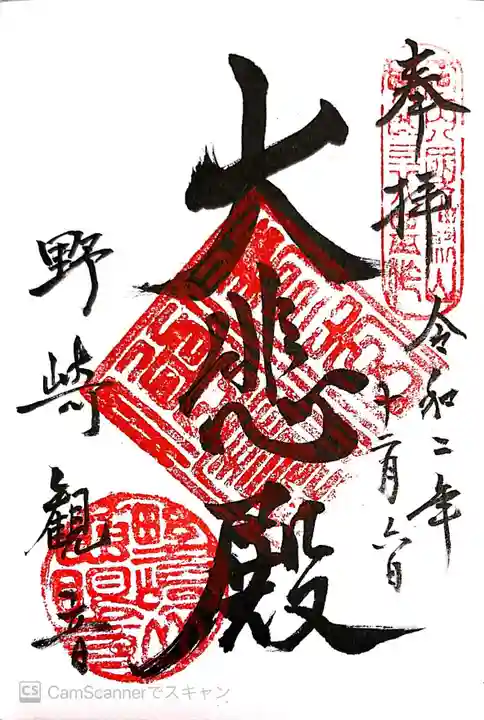 奉拝
令和二年
十二月六日
大悲殿
野崎観音
CS CamScannerでスキャン